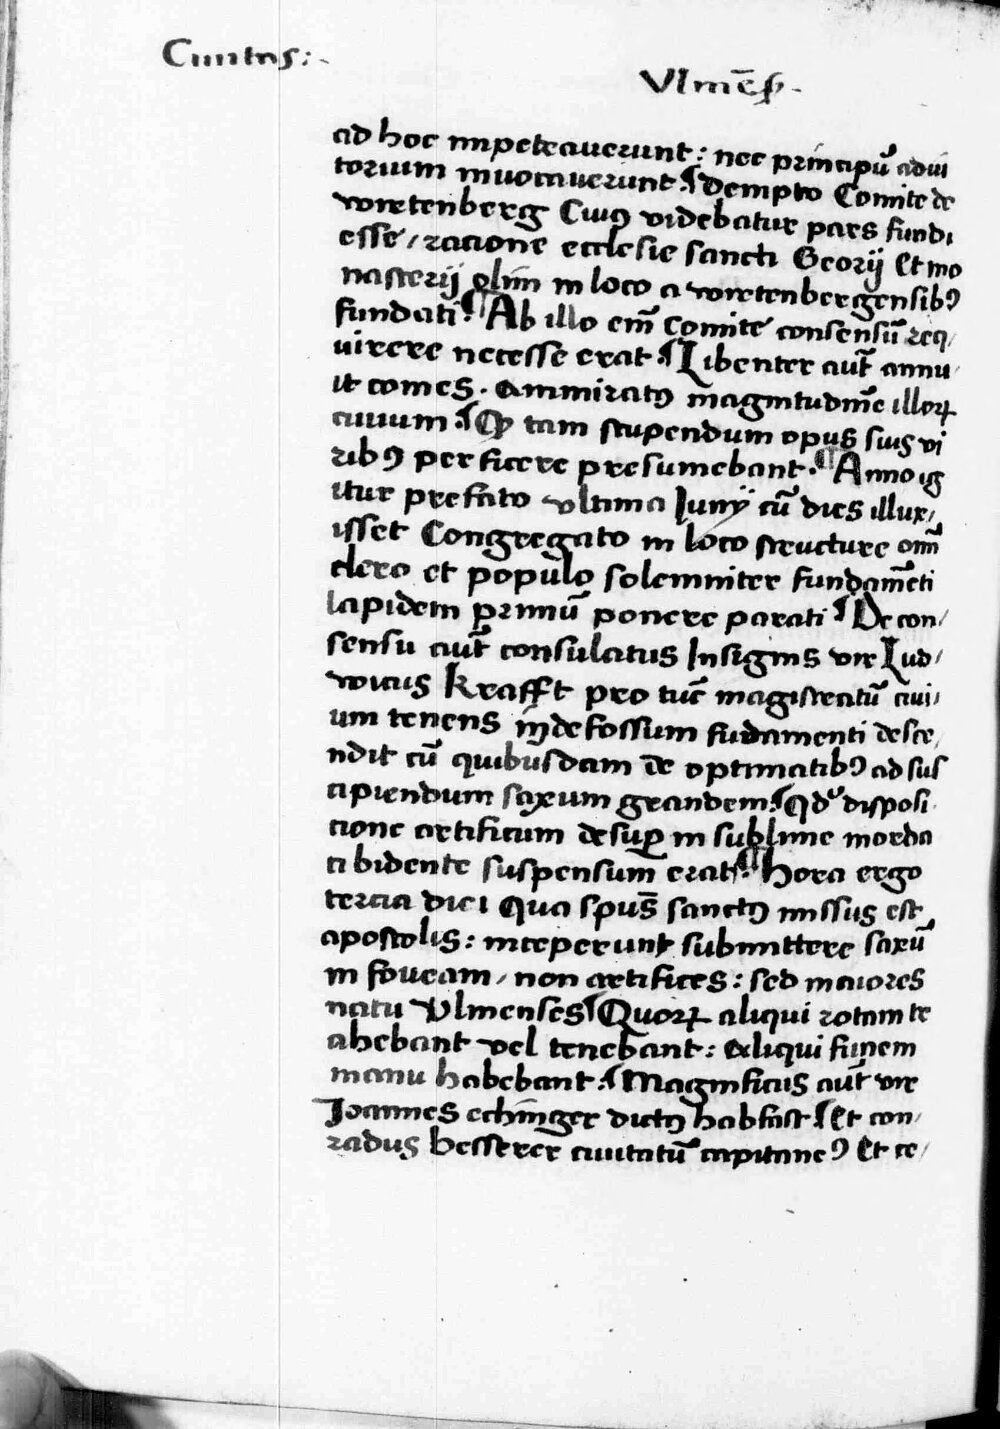 Ciuitas:
Vlmēs̄.
ad hoc impetrauerunt: nec principū adiu
torium inuocauerunt ¶ Dempto Comite de
wirtenberg Cuiꝰ videbatur pars fundi
esse / racione ecclesie sancti Georij Et mo
nasterij olim in loco a wirtenbergensibꝰ
fundati ¶ Ab illo em̄ Comite consensū req
uirere necesse erat ¶ Libenter aut̄ annu
it comes. Ammiratꝰ magnitudinē illoꝝ
ciuium ¶ Qꝫ tam stupendum opus suis vi
ribꝰ perficere presumebant. ¶ Anno ig
itur prefato vltima Junÿ cū dies illux/
isset Congregato in loco structure om̄i
clero et populo solemniter fundamēti
lapidem primū ponere parati ¶ De con/
sensu aut̄ consulatus Insignis vir Lud/
wicus Krafft pro tūc magistratū ciui/
um tenens in̄ defossum fundamenti desce/
ndit cū quibusdam de optimatibꝰ ad sus
cipiendum saxum grandem: ¶ Qd' disposi
cione artificum desuꝑ in sublime morda
ti bidente suspensum erat ¶ Hora ergo
tercia diei Qua spūs sanctꝰ missus est
apostolis: inceperunt submittere saxū
in foueam / non artifices: sed maiores
natu Vlmenses ¶ Quoꝝ aliqui rotam tr
ahebant vel tenebant: Aliqui funem
manu habebant: ¶ Magnificus aut̄ vir
Joannes echinger dictꝰ habfast ¶ Et con/
radus besserer ciuitatū capitaneꝰ Et ce/